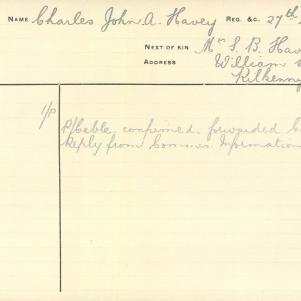 NAME Charles John A. Havey REG. &C. 27th
NEXT OF KIN Mrs S. B. Hav
ADDRESS William S
Kilkenny
1/P
P/Cable, confirmed, forwarded
Reply from Commun. Information